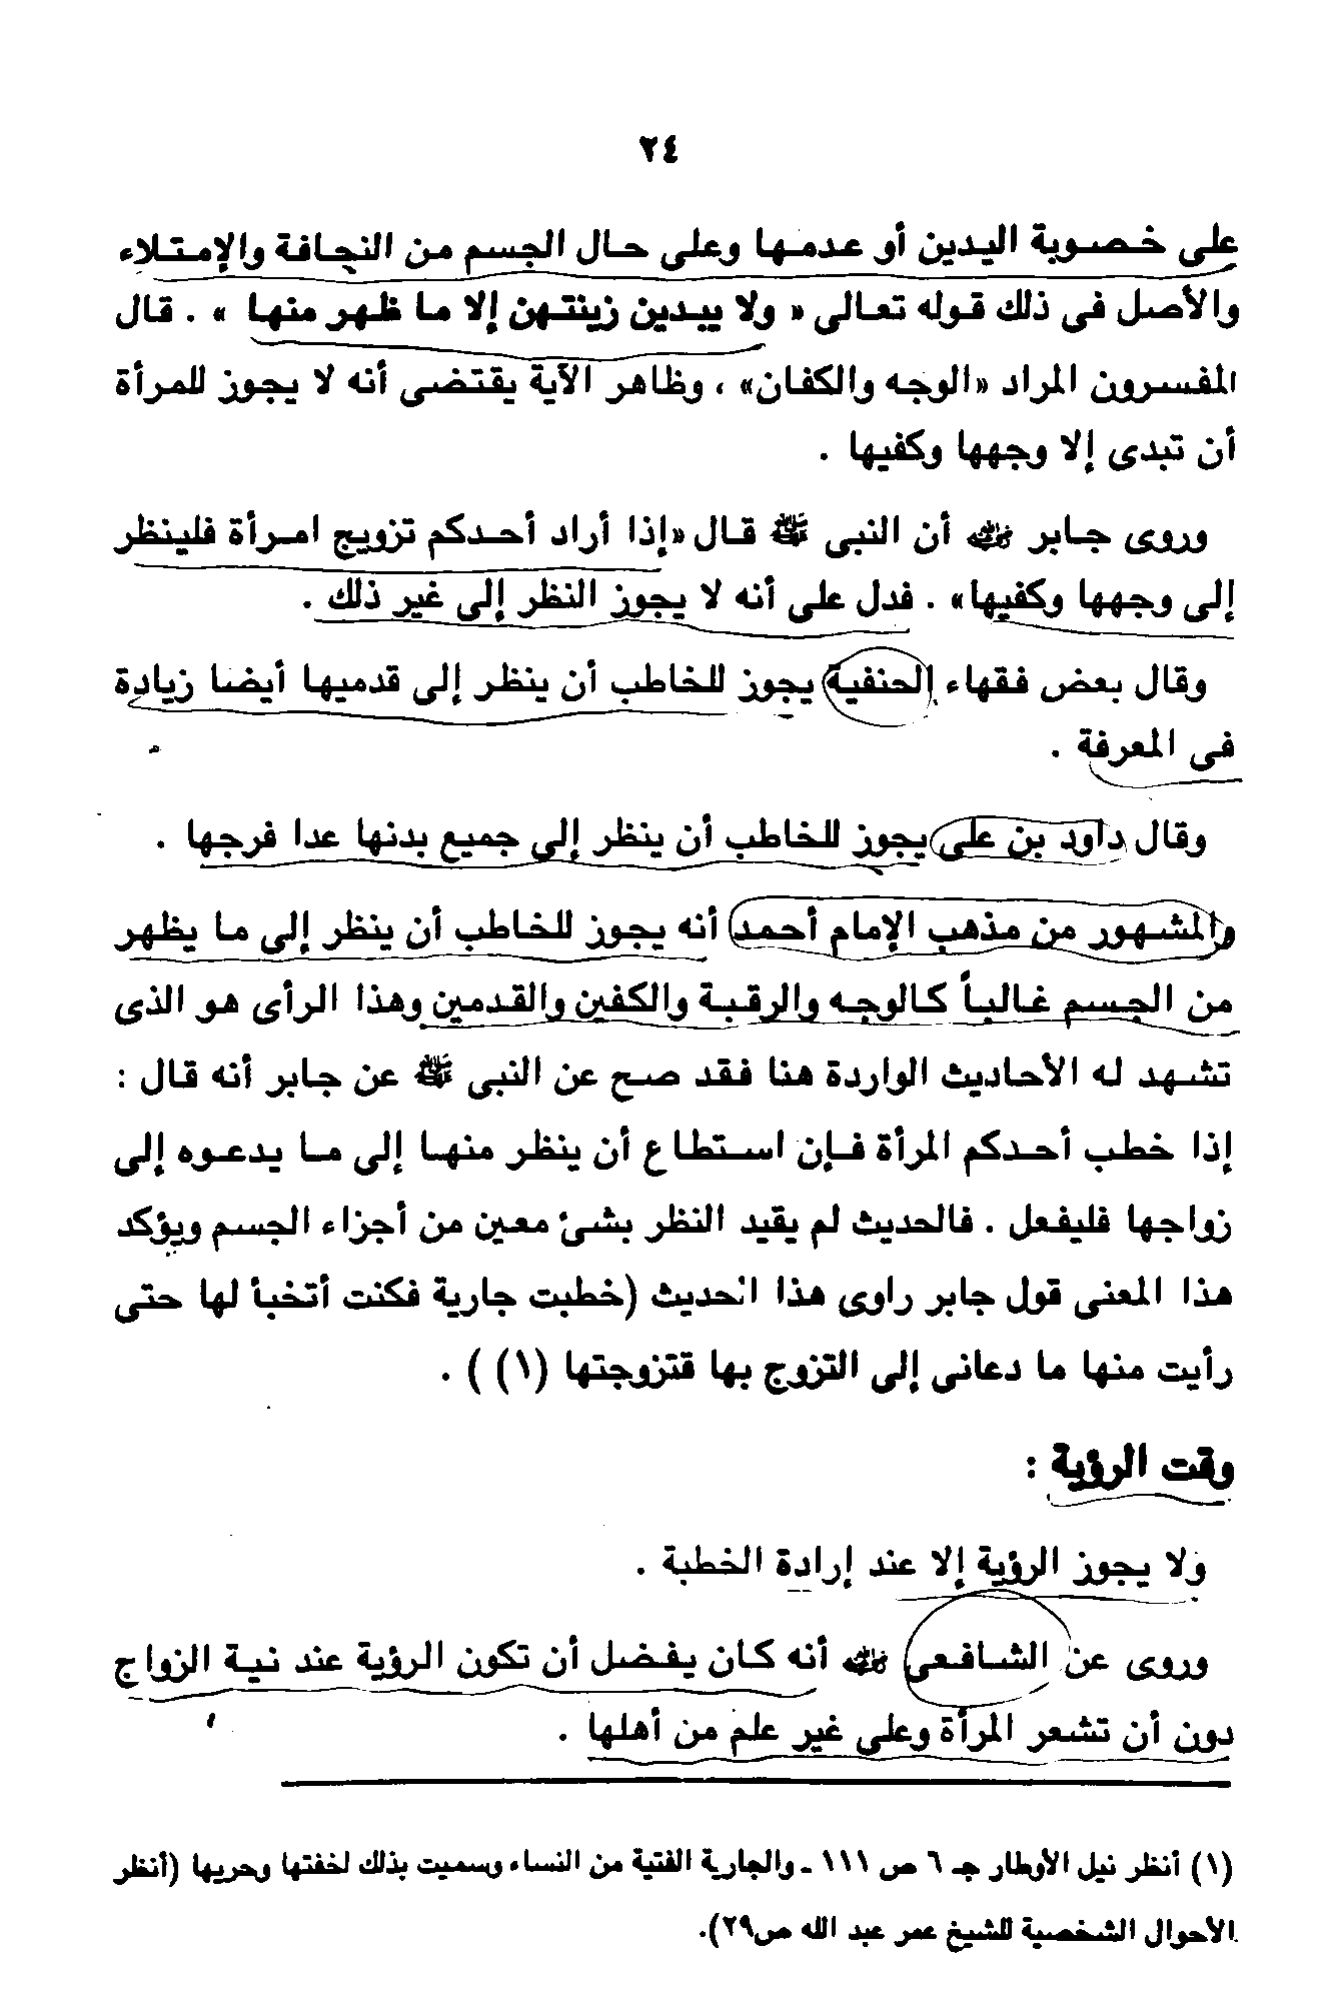 ٢٤
على خصوبة اليدين أو عدمها وعلى حال الجسم من النحافة والإمتلاء
والأصل فى ذلك قوله تعالى « ولا يبدين زينتهن إلا ما ظهر منها » . قال
المفسرون المراد «الوجه والكفان» ، وظاهر الآية يقتضى أنه لا يجوز للمرأة
أن تبدى إلا وجهها وكفيها .
وروى جابر رضي الله عنه أن النبى ﷺ قال «إذا أراد أحدكم تزويج امرأة فلينظر
إلى وجهها وكفيها» . فدل على أنه لا يجوز النظر إلى غير ذلك .
وقال بعض فقهاء الحنفية يجوز للخاطب أن ينظر إلى قدميها أيضا زيادة
فى المعرفة .
وقال داود بن على يجوز للخاطب أن ينظر إلى جميع بدنها عدا فرجها .
والمشهور من مذهب الإمام أحمد أنه يجوز للخاطب أن ينظر إلى ما يظهر
من الجسم غالباً كالوجه والرقبة والكفين والقدمين وهذا الرأى هو الذى
تشهد له الأحاديث الواردة هنا فقد صح عن النبى ﷺ عن جابر أنه قال :
إذا خطب أحدكم المرأة فإن استطاع أن ينظر منها إلى ما يدعوه إلى
زواجها فليفعل . فالحديث لم يقيد النظر بشئ معين من أجزاء الجسم ويؤكد
هذا المعنى قول جابر راوى هذا الحديث (خطبت جارية فكنت أتخبأ لها حتى
رأيت منها ما دعانى إلى التزوج بها فتزوجتها (١) ) .
وقت الرؤية :
ولا يجوز الرؤية إلا عند إرادة الخطبة .
وروى عن الشافعى رضي الله عنه أنه كان يفضل أن تكون الرؤية عند نية الزواج
دون أن تشعر المرأة وعلى غير علم من أهلها .
(١) أنظر نيل الأوطار جـ ٦ ص ١١١ ـ والجارية الفتية من النساء وسميت بذلك لخفتها وحريها (أنظر
الأحوال الشخصية للشيخ عمر عبد الله ص٢٩).